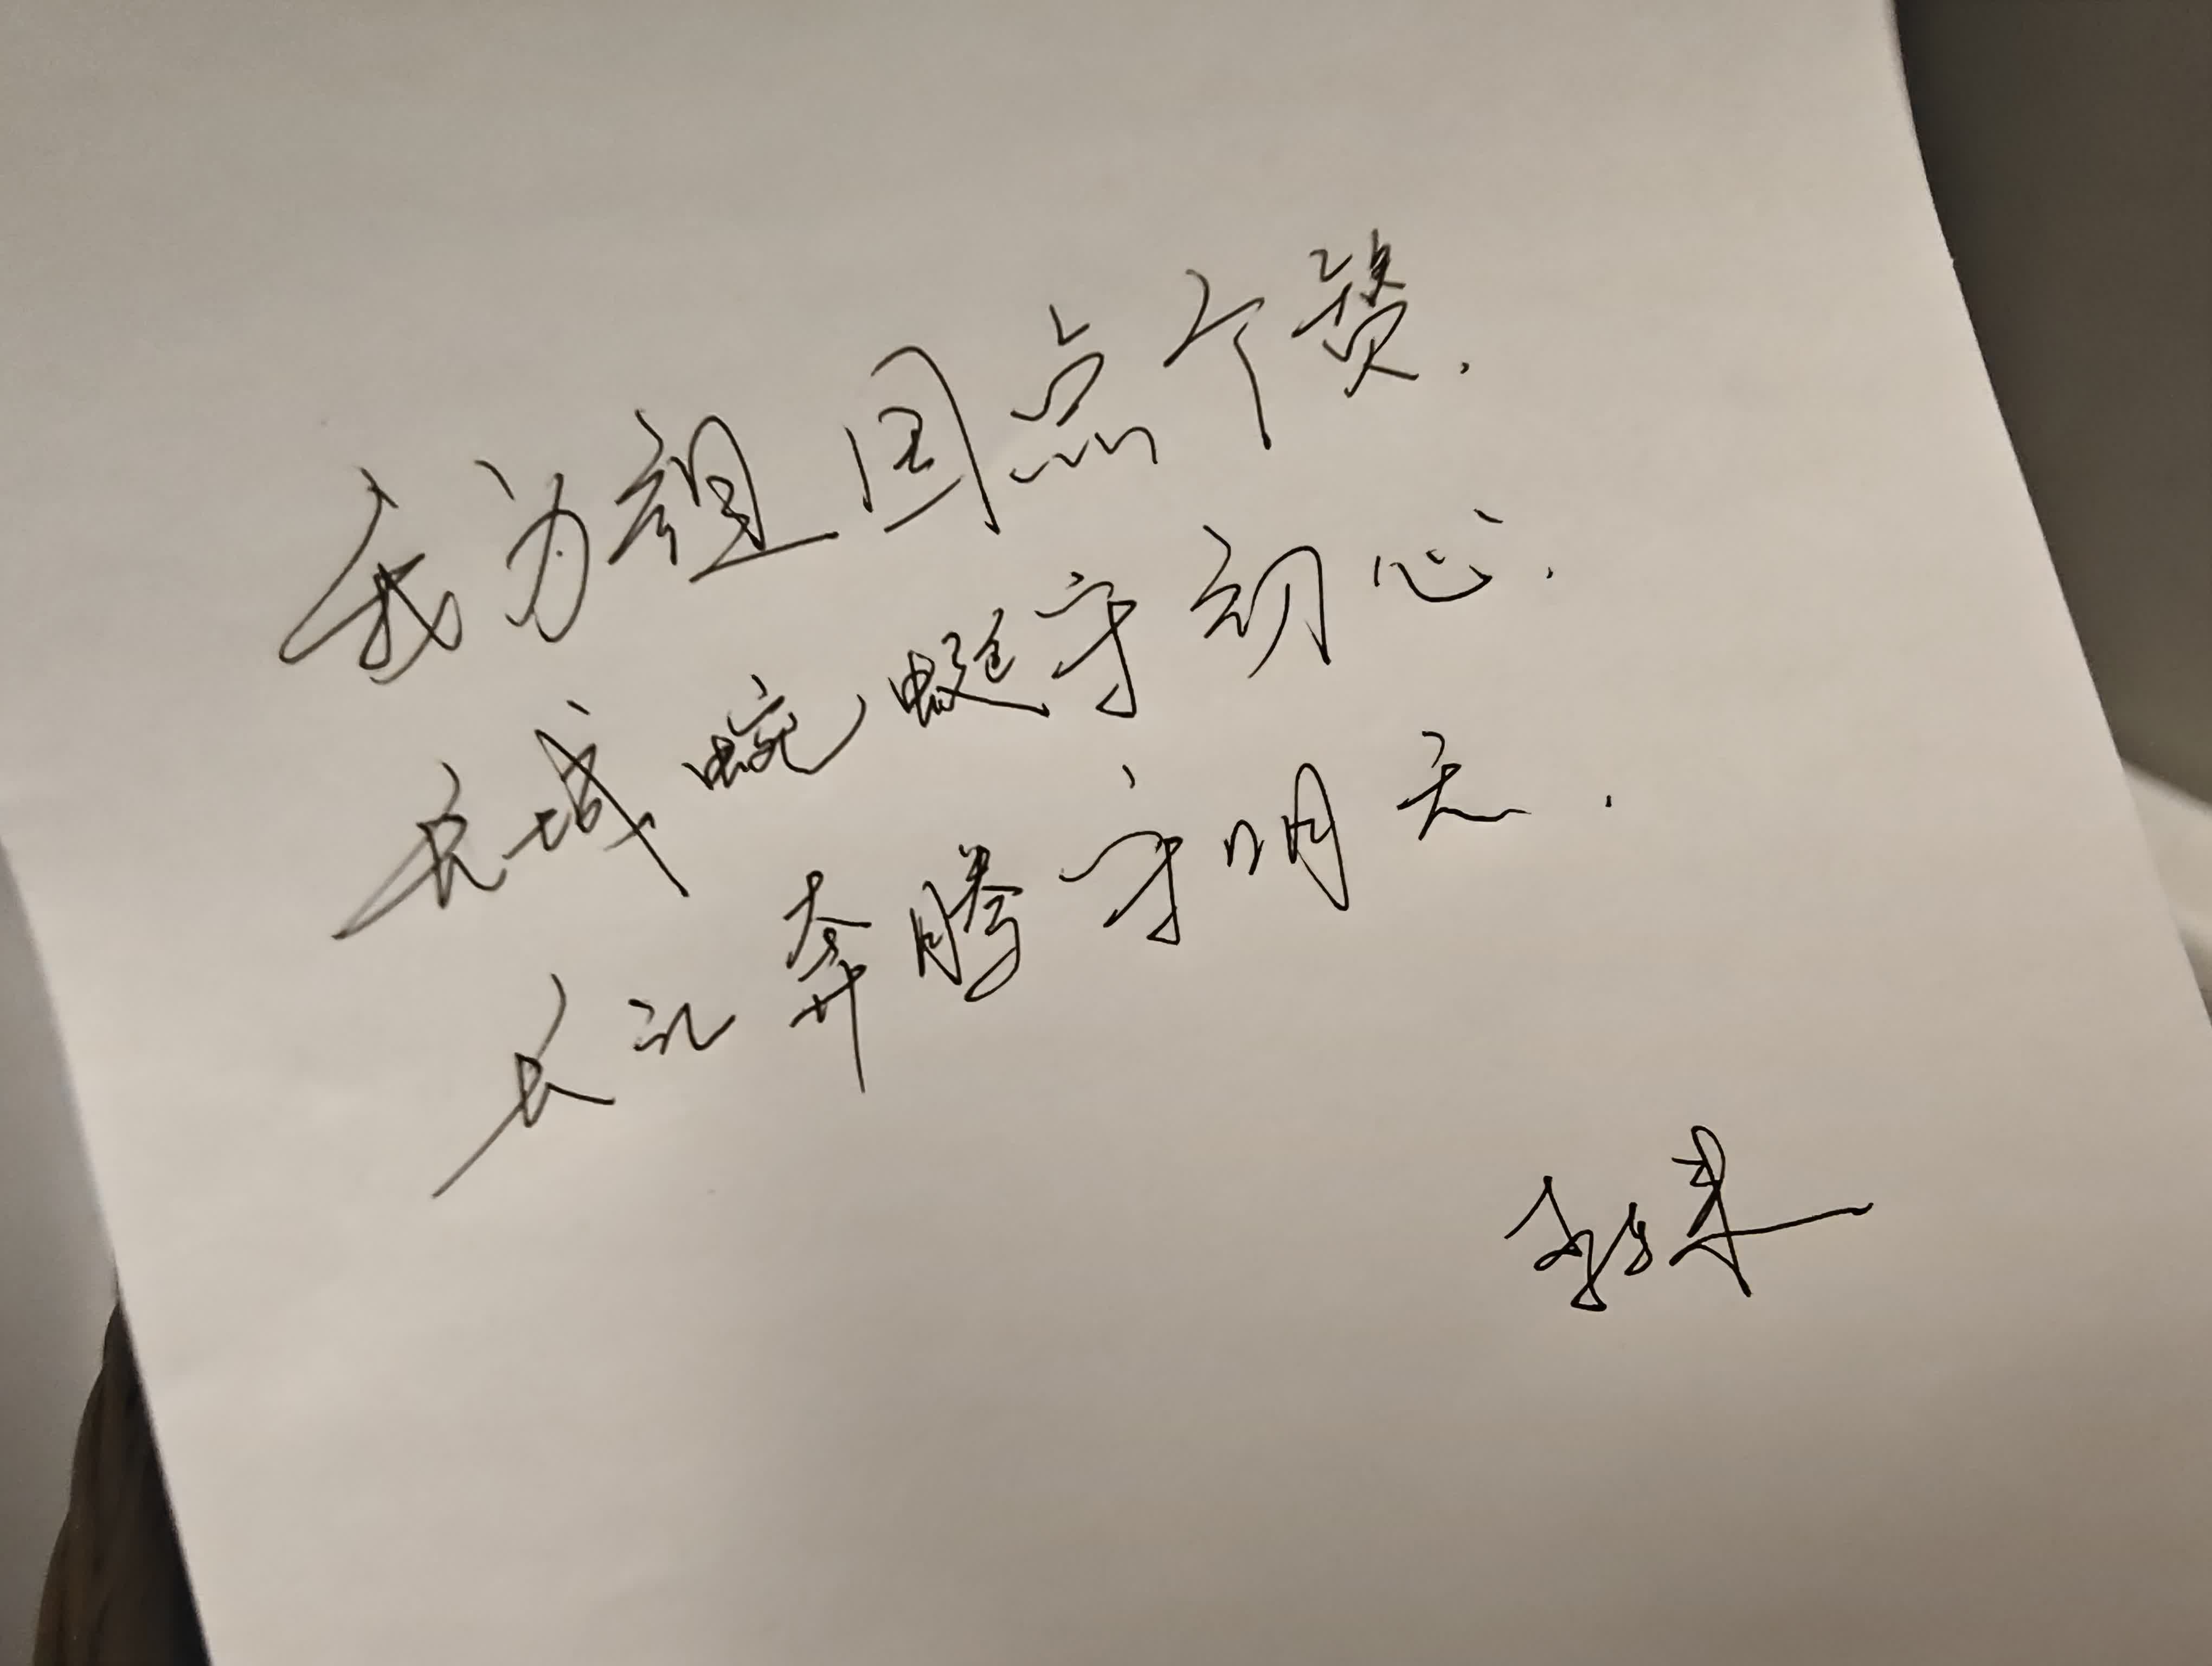 我为祖国点个赞.
长城蜿蜒守初心.
长江奔腾守明天.